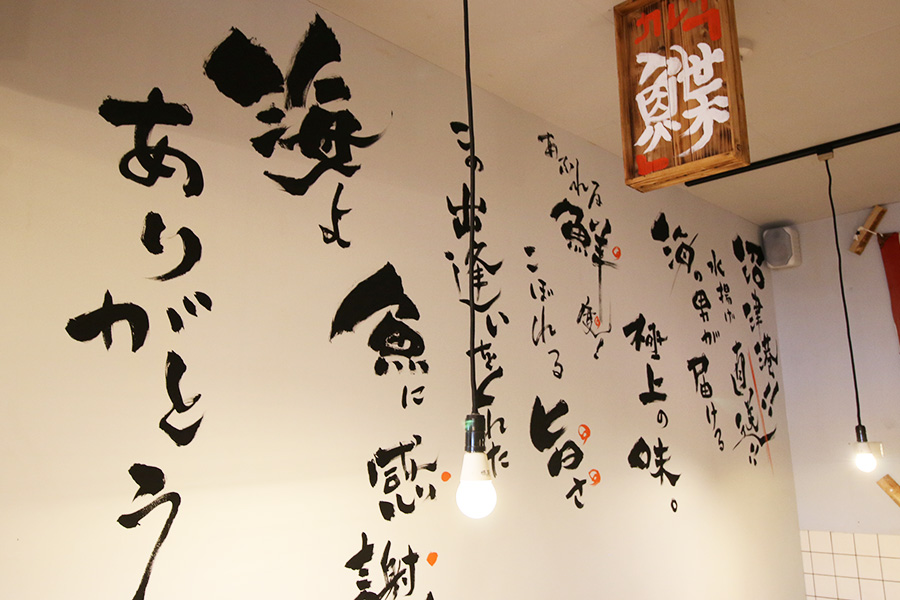 鰈
沼津港!!
直送に
水揚げ
海の男が
届ける
極上の味。
あふれる
鮮度と
こぼれる
旨さ
この出逢いをくれた
海よ
魚に
感謝
ありがとう